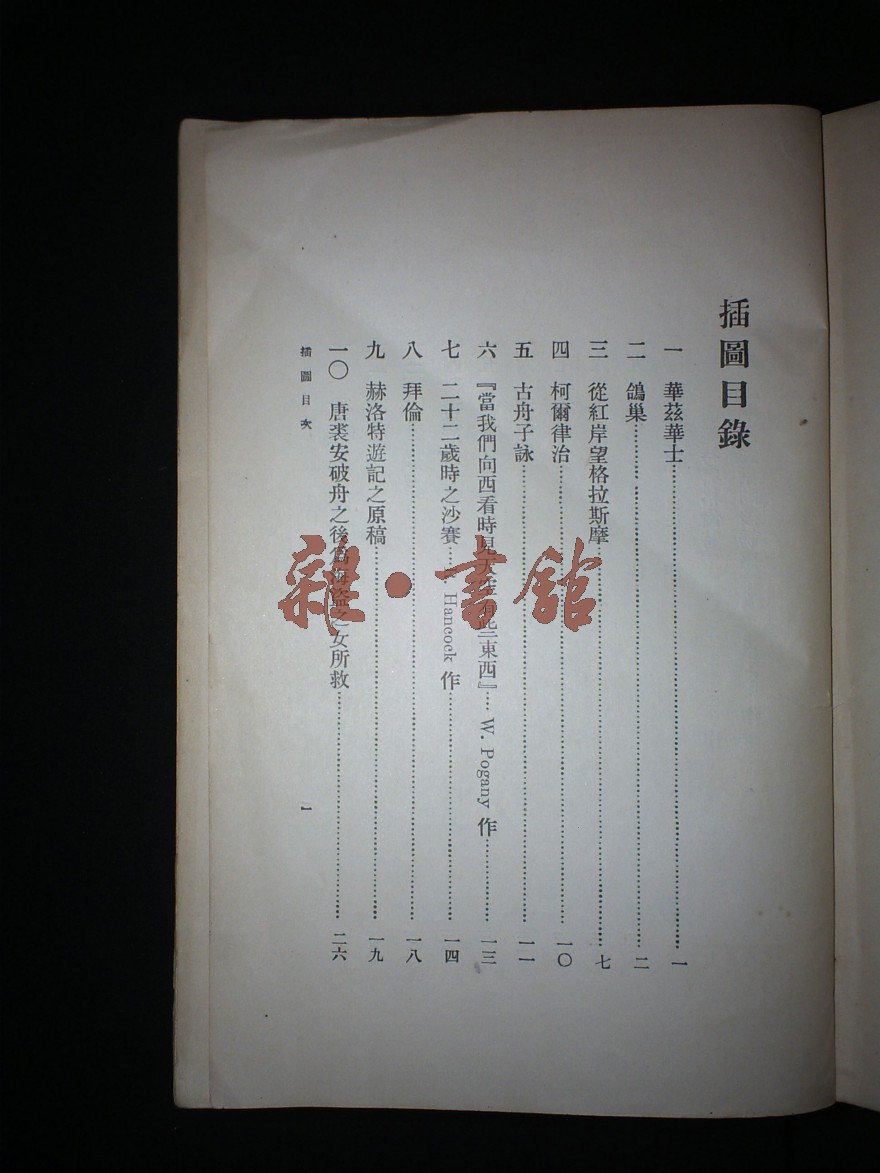 插圖目錄
一 華茲華士……一
二 鴿巢……二
三 從紅岸望格拉斯摩……七
四 柯爾律治……一〇
五 古舟子詠……一一
六 『當我們向西看時見天空有些東西』…… W. Pogany 作……一三
七 二十二歲時之沙賽…… Hancock 作……一四
八 拜倫……一八
九 赫洛特遊記之原稿……一九
一〇 唐裘安破舟之後爲海盜之女所救……二六
插圖目次
一
雜·書館